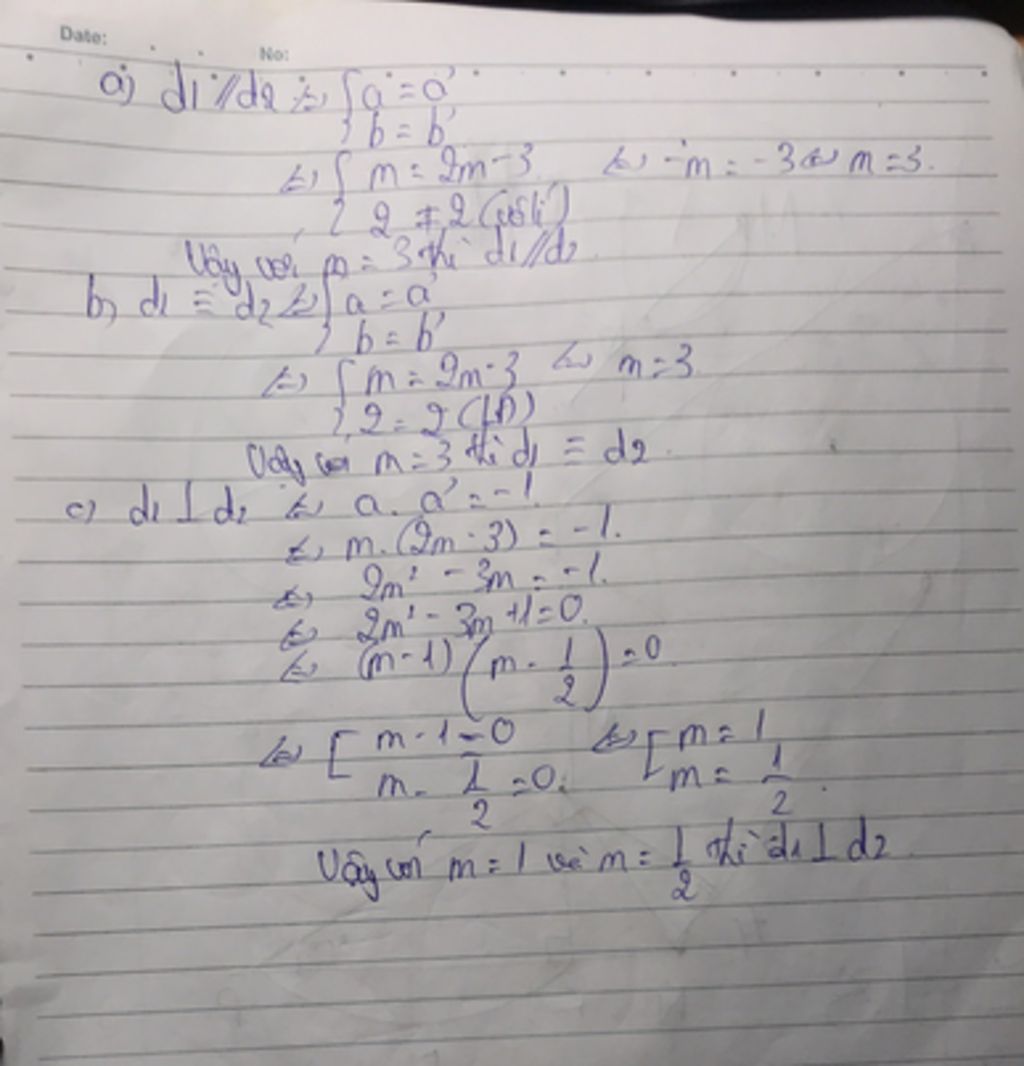 Date:
No:
a) d1 // d2 ⇔ { a = a'
b = b'
⇔ { m = 2m - 3 ⇔ -m = -3 ⇔ m = 3.
2 ≠ 2 (vô lí)
Vậy với m = 3 thì d1 // d2
b) d1 ≡ d2 ⇔ { a = a'
b = b'
⇔ { m = 2m - 3 ⇔ m = 3
2 = 2 (LĐ)
Vậy với m = 3 thì d1 ≡ d2
c) d1 ⊥ d2 ⇔ a. a' = -1.
⇔ m. (2m - 3) = -1.
⇔ 2m² - 3m = -1.
⇔ 2m² - 3m + 1 = 0.
⇔ (m - 1) (m - 1/2) = 0
⇔ [ m - 1 = 0 ⇔ [ m = 1
m - 1/2 = 0. m = 1/2.
Vậy với m = 1 và m = 1/2 thì d1 ⊥ d2